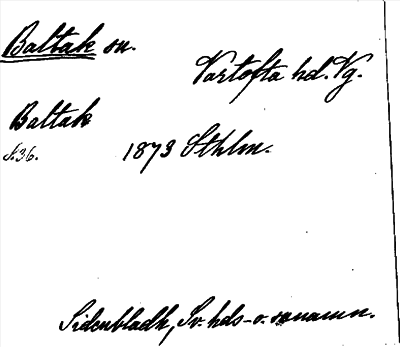 Baltak sn.
Vartofta hd. Vg.
Baltak
s. 36.
1873 Sthlm.
Sidenbladh, Sv. hds- o. snnamn.